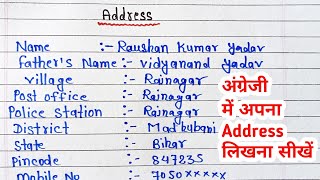 Address
Name :- Raushan Kumar Yadav
father's Name :- vidyanand yadav
village :- Rajnagar
Post office :- Rajnagar
Police Station :- Rajnagar
District :- Madhubani
State :- Bihar
Pincode :- 847235
Mobile No :- 7050xxxxxx
अंग्रेजी
में अपना
Address
लिखना सीखें